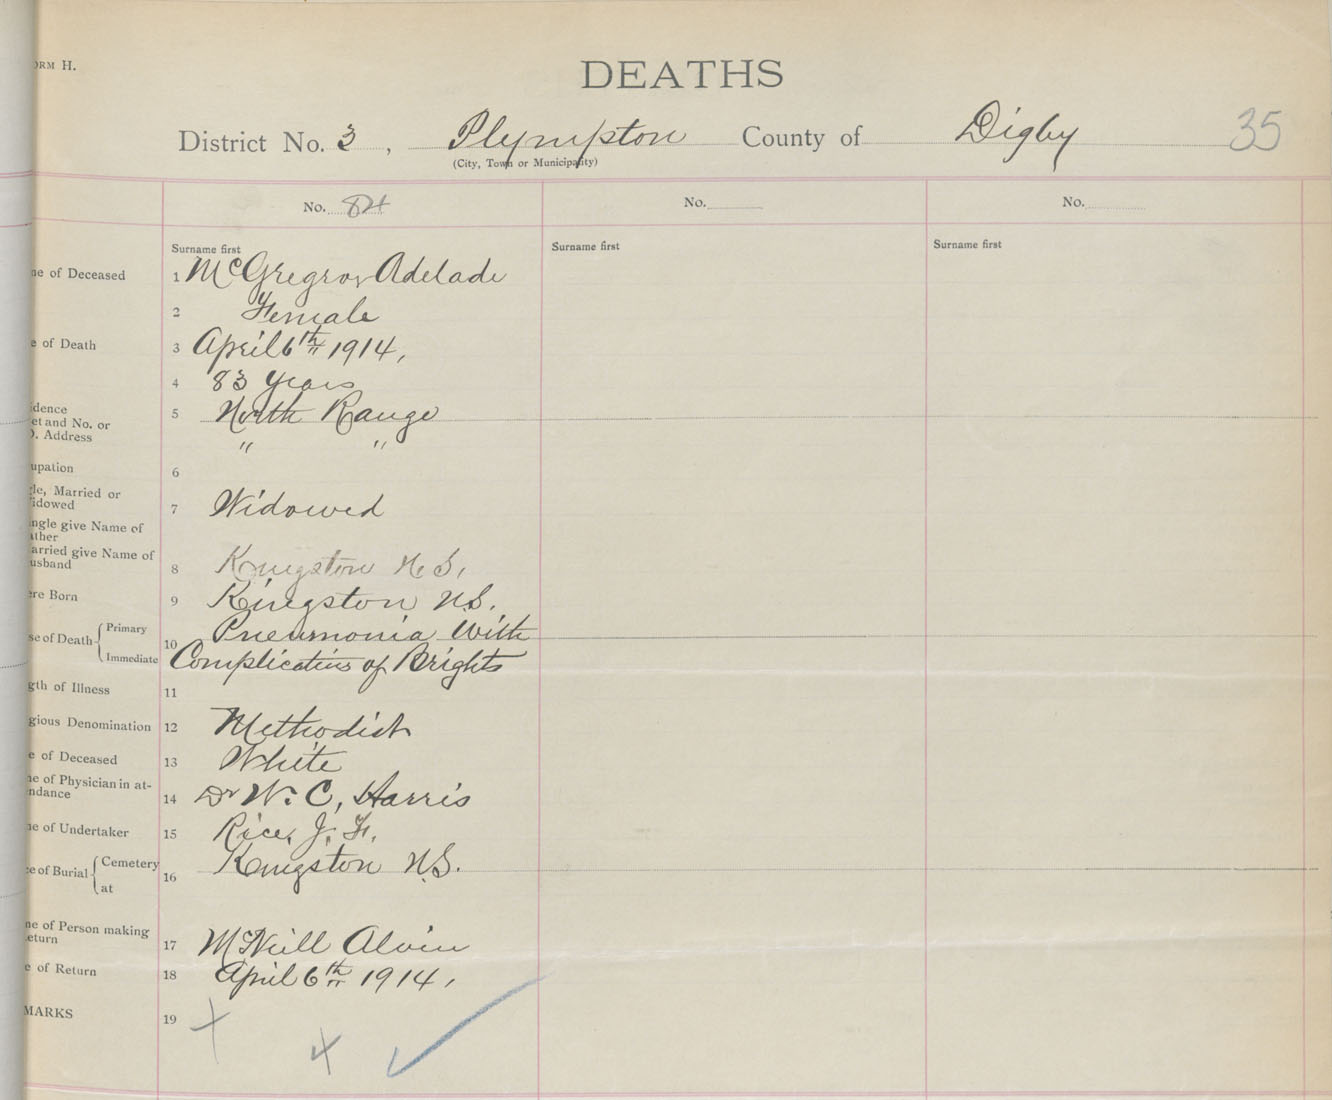 ORM H.
DEATHS
District No. 3, Plympton County of Digby 35
(City, Town or Municipality)
No. 84 No. No.
Surname first Surname first Surname first
ne of Deceased 1 McGregror Adelade
2 Female
e of Death 3 April 6th 1914,
4 83 years
idence
et and No. or 5 North Range
O. Address " "
upation 6
gle, Married or
idowed 7 Widowed
ingle give Name of
ather
arried give Name of
usband 8 Kingston N.S.
ere Born 9 Kingston N.S.
se of Death Primary 10 Pneumonia With
Immediate Complications of Brights
gth of Illness 11
gious Denomination 12 Methodist
e of Deceased 13 White
ne of Physician in at-
ndance 14 Dr W. C, Harris
ne of Undertaker 15 Rice, J. F.
ce of Burial Cemetery 16 Kingston N.S.
at
ne of Person making
eturn 17 McNeill Alvin
e of Return 18 April 6th 1914,
MARKS 19